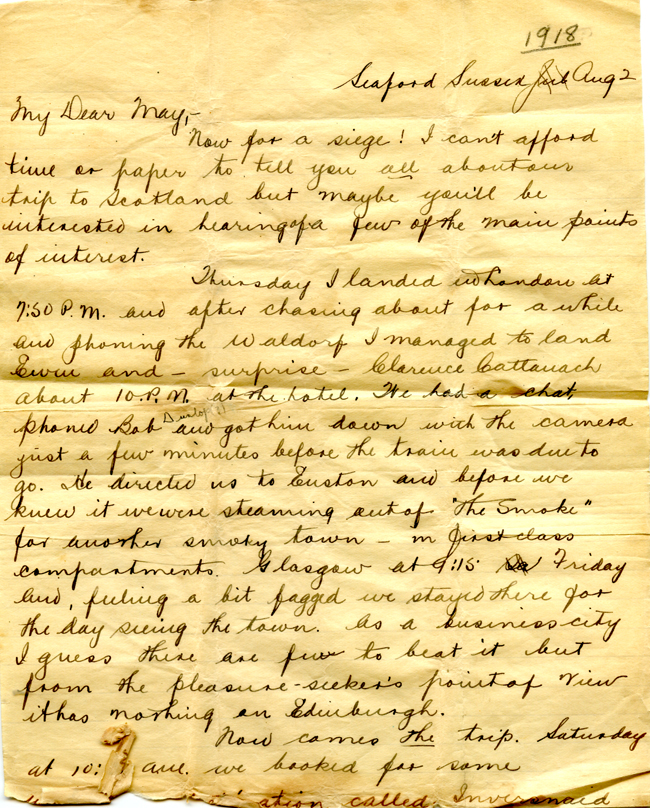 1918
Seaford Sussex July Aug 2
My Dear May,-
Now for a siege! I can't afford
time or paper to tell you all about our
trip to Scotland but maybe you'll be
interested in hearing of a few of the main points
of interest.
Thursday I landed in London at
7:50 P.M. and after chasing about for a while
and phoning the Waldorf I managed to land
Ewin and - surprise - Clarence Cattanach
about 10 P.M. at the hotel. We had a chat,
phoned Bob and got him down with the camera
Dunlop
just a few minutes before the train was due to
go. He directed us to Euston and before we
knew it we were steaming out of "The Smoke"
for another smoky town - in first class
compartments. Glasgow at 9:15 Friday
and, feeling a bit fagged we stayed there for
the day seeing the town. As a business city
I guess there are few to beat it but
from the pleasure-seeker's point of view
it has nothing on Edinburgh.
Now comes the trip. Saturday
at 10: a.m. we booked for some
ation called Inversnaid